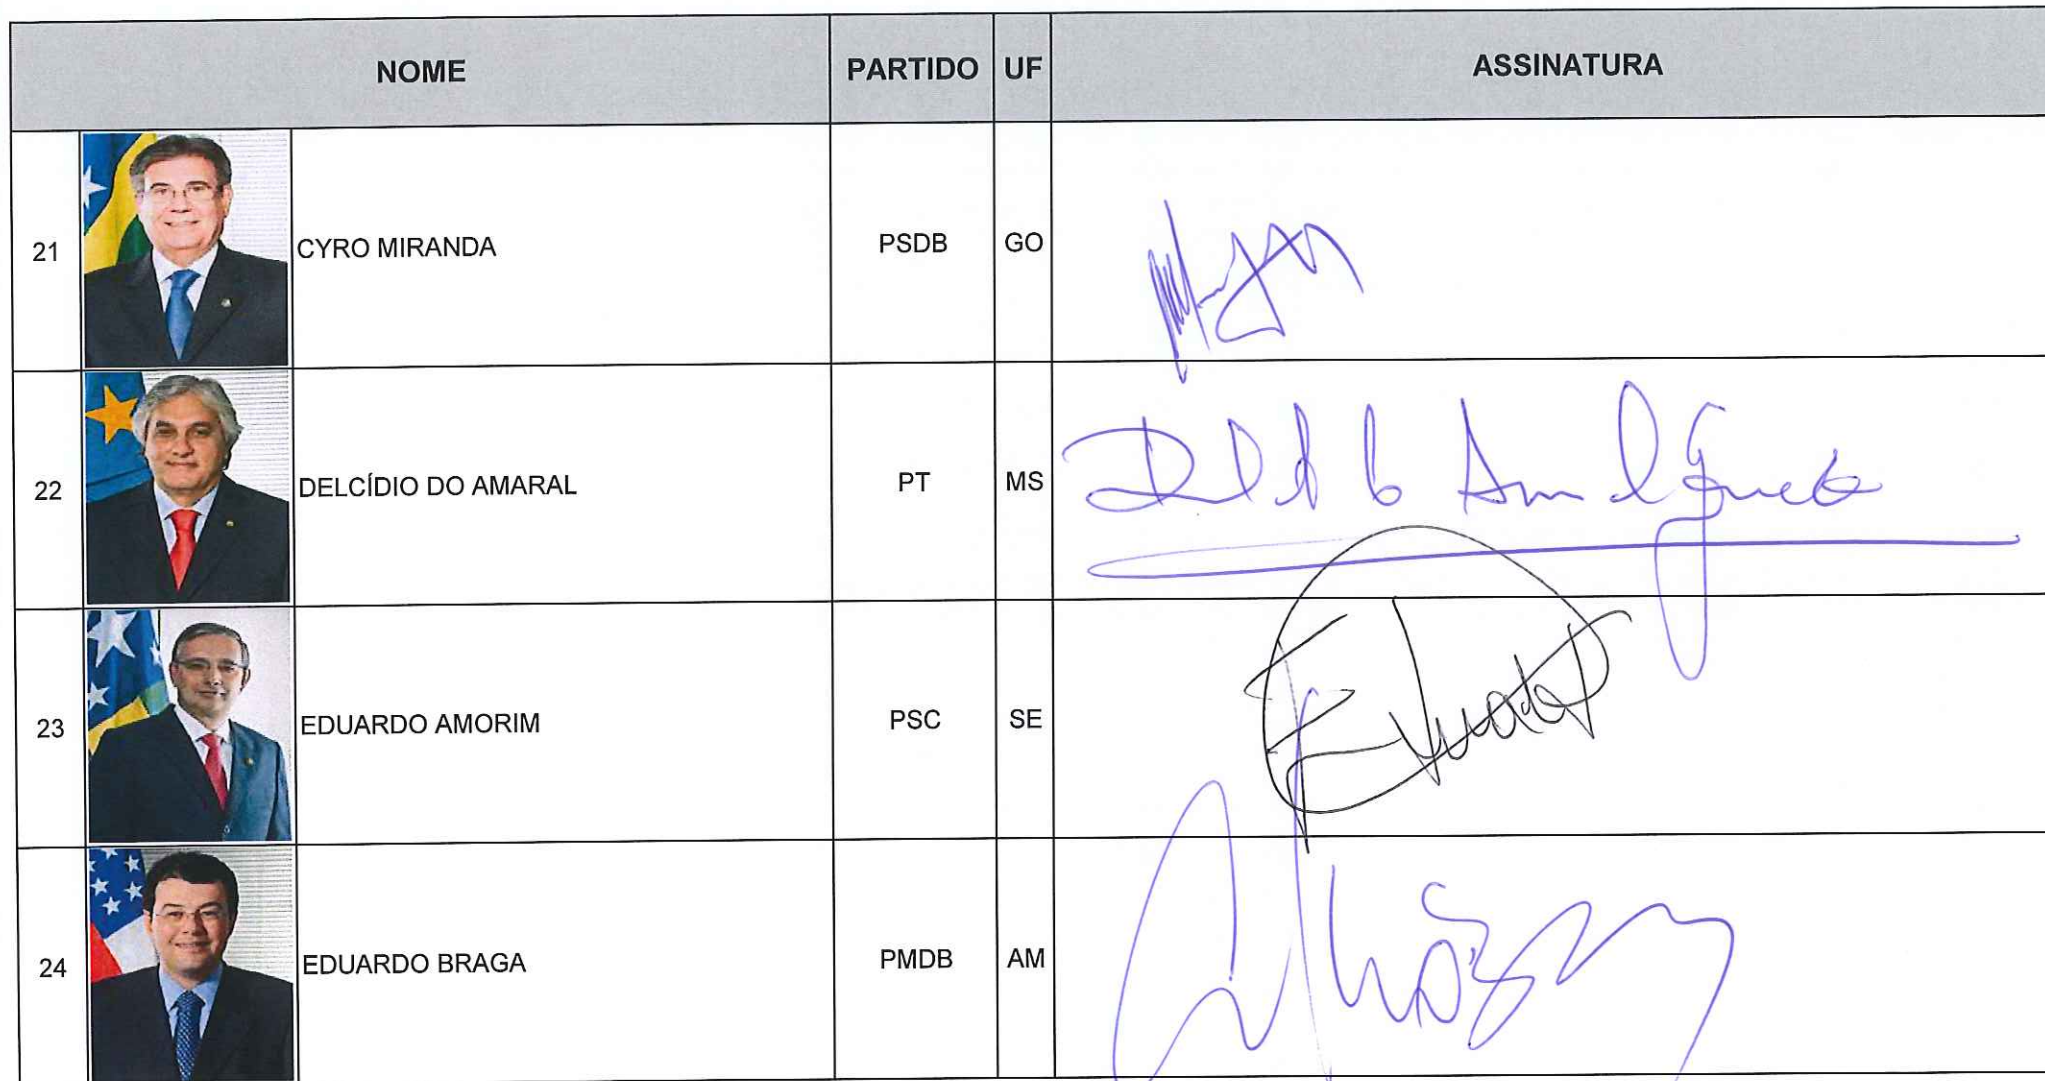 NOME PARTIDO UF ASSINATURA
21 CYRO MIRANDA PSDB GO
22 DELCÍDIO DO AMARAL PT MS
23 EDUARDO AMORIM PSC SE
24 EDUARDO BRAGA PMDB AM